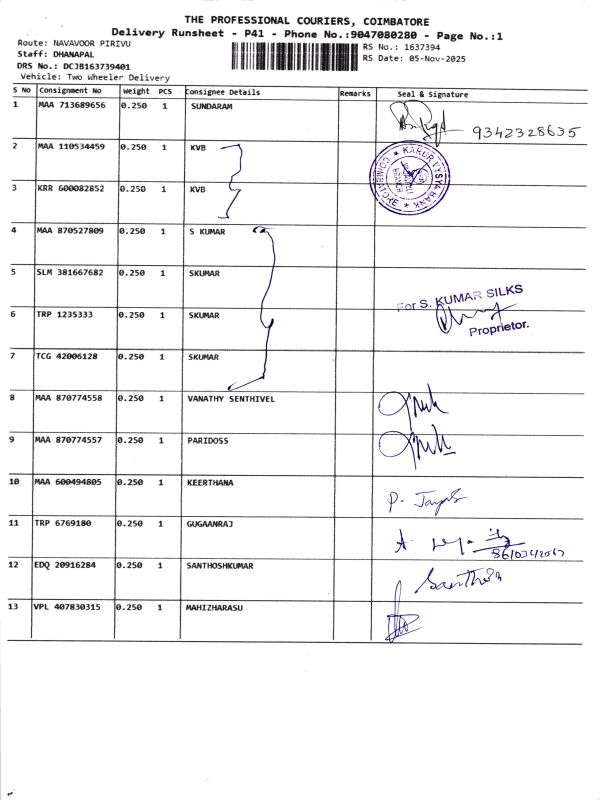 THE PROFESSIONAL COURIERS, COIMBATORE
Delivery Runsheet - P41 - Phone No.:9047080280 - Page No.:1
Route: NAVAVOOR PIRIVU
RS No.: 1637394
Staff: DHANAPAL
RS Date: 05-Nov-2025
DRS No.: DCJB163739401
Vehicle: Two Wheeler Delivery
S No Consignment No Weight PCS Consignee Details Remarks Seal & Signature
1 MAA 713689656 0.250 1 SUNDARAM
9342328635
2 MAA 110534459 0.250 1 KVB
KARUR VYSYA BANK
COIMBATORE
BRANCH
3 KRR 600082852 0.250 1 KVB
4 MAA 870527809 0.250 1 S KUMAR
5 SLM 381667682 0.250 1 SKUMAR
For S. KUMAR SILKS
6 TRP 1235333 0.250 1 SKUMAR
Proprietor.
7 TCG 42006128 0.250 1 SKUMAR
8 MAA 870774558 0.250 1 VANATHY SENTHIVEL
9 MAA 870774557 0.250 1 PARIDOSS
10 MAA 600494805 0.250 1 KEERTHANA
11 TRP 6769180 0.250 1 GUGAANRAJ
12 EDQ 20916284 0.250 1 SANTHOSHKUMAR
13 VPL 407830315 0.250 1 MAHIZHARASU